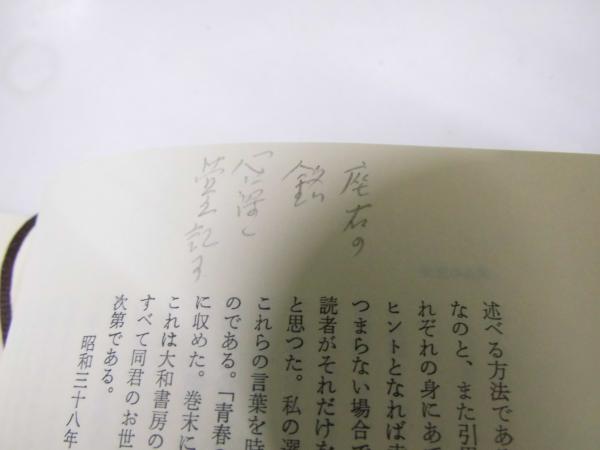 座右の
銘
「心に深く
述べる方法であ
なのと、また引用
れぞれの身にあて
ヒントとなれば幸
つまらない場合で
読者がそれだけな
と思つた。私の選
これらの言葉を時
のである。「青春の
に収めた。巻末に
これは大和書房の
すべて同君のお世
次第である。
昭和三十八年